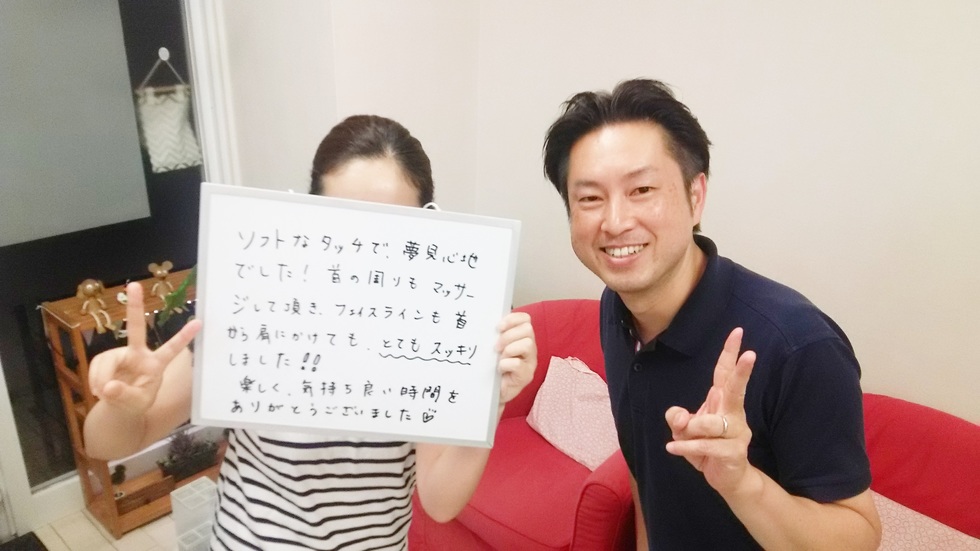 ソフトなタッチで、夢見心地
でした！首の周りもマッサー
ジして頂き、フェイスラインも首
から肩にかけても、とてもスッキリ
しました!!
楽しく、気持ち良い時間を
ありがとうございました